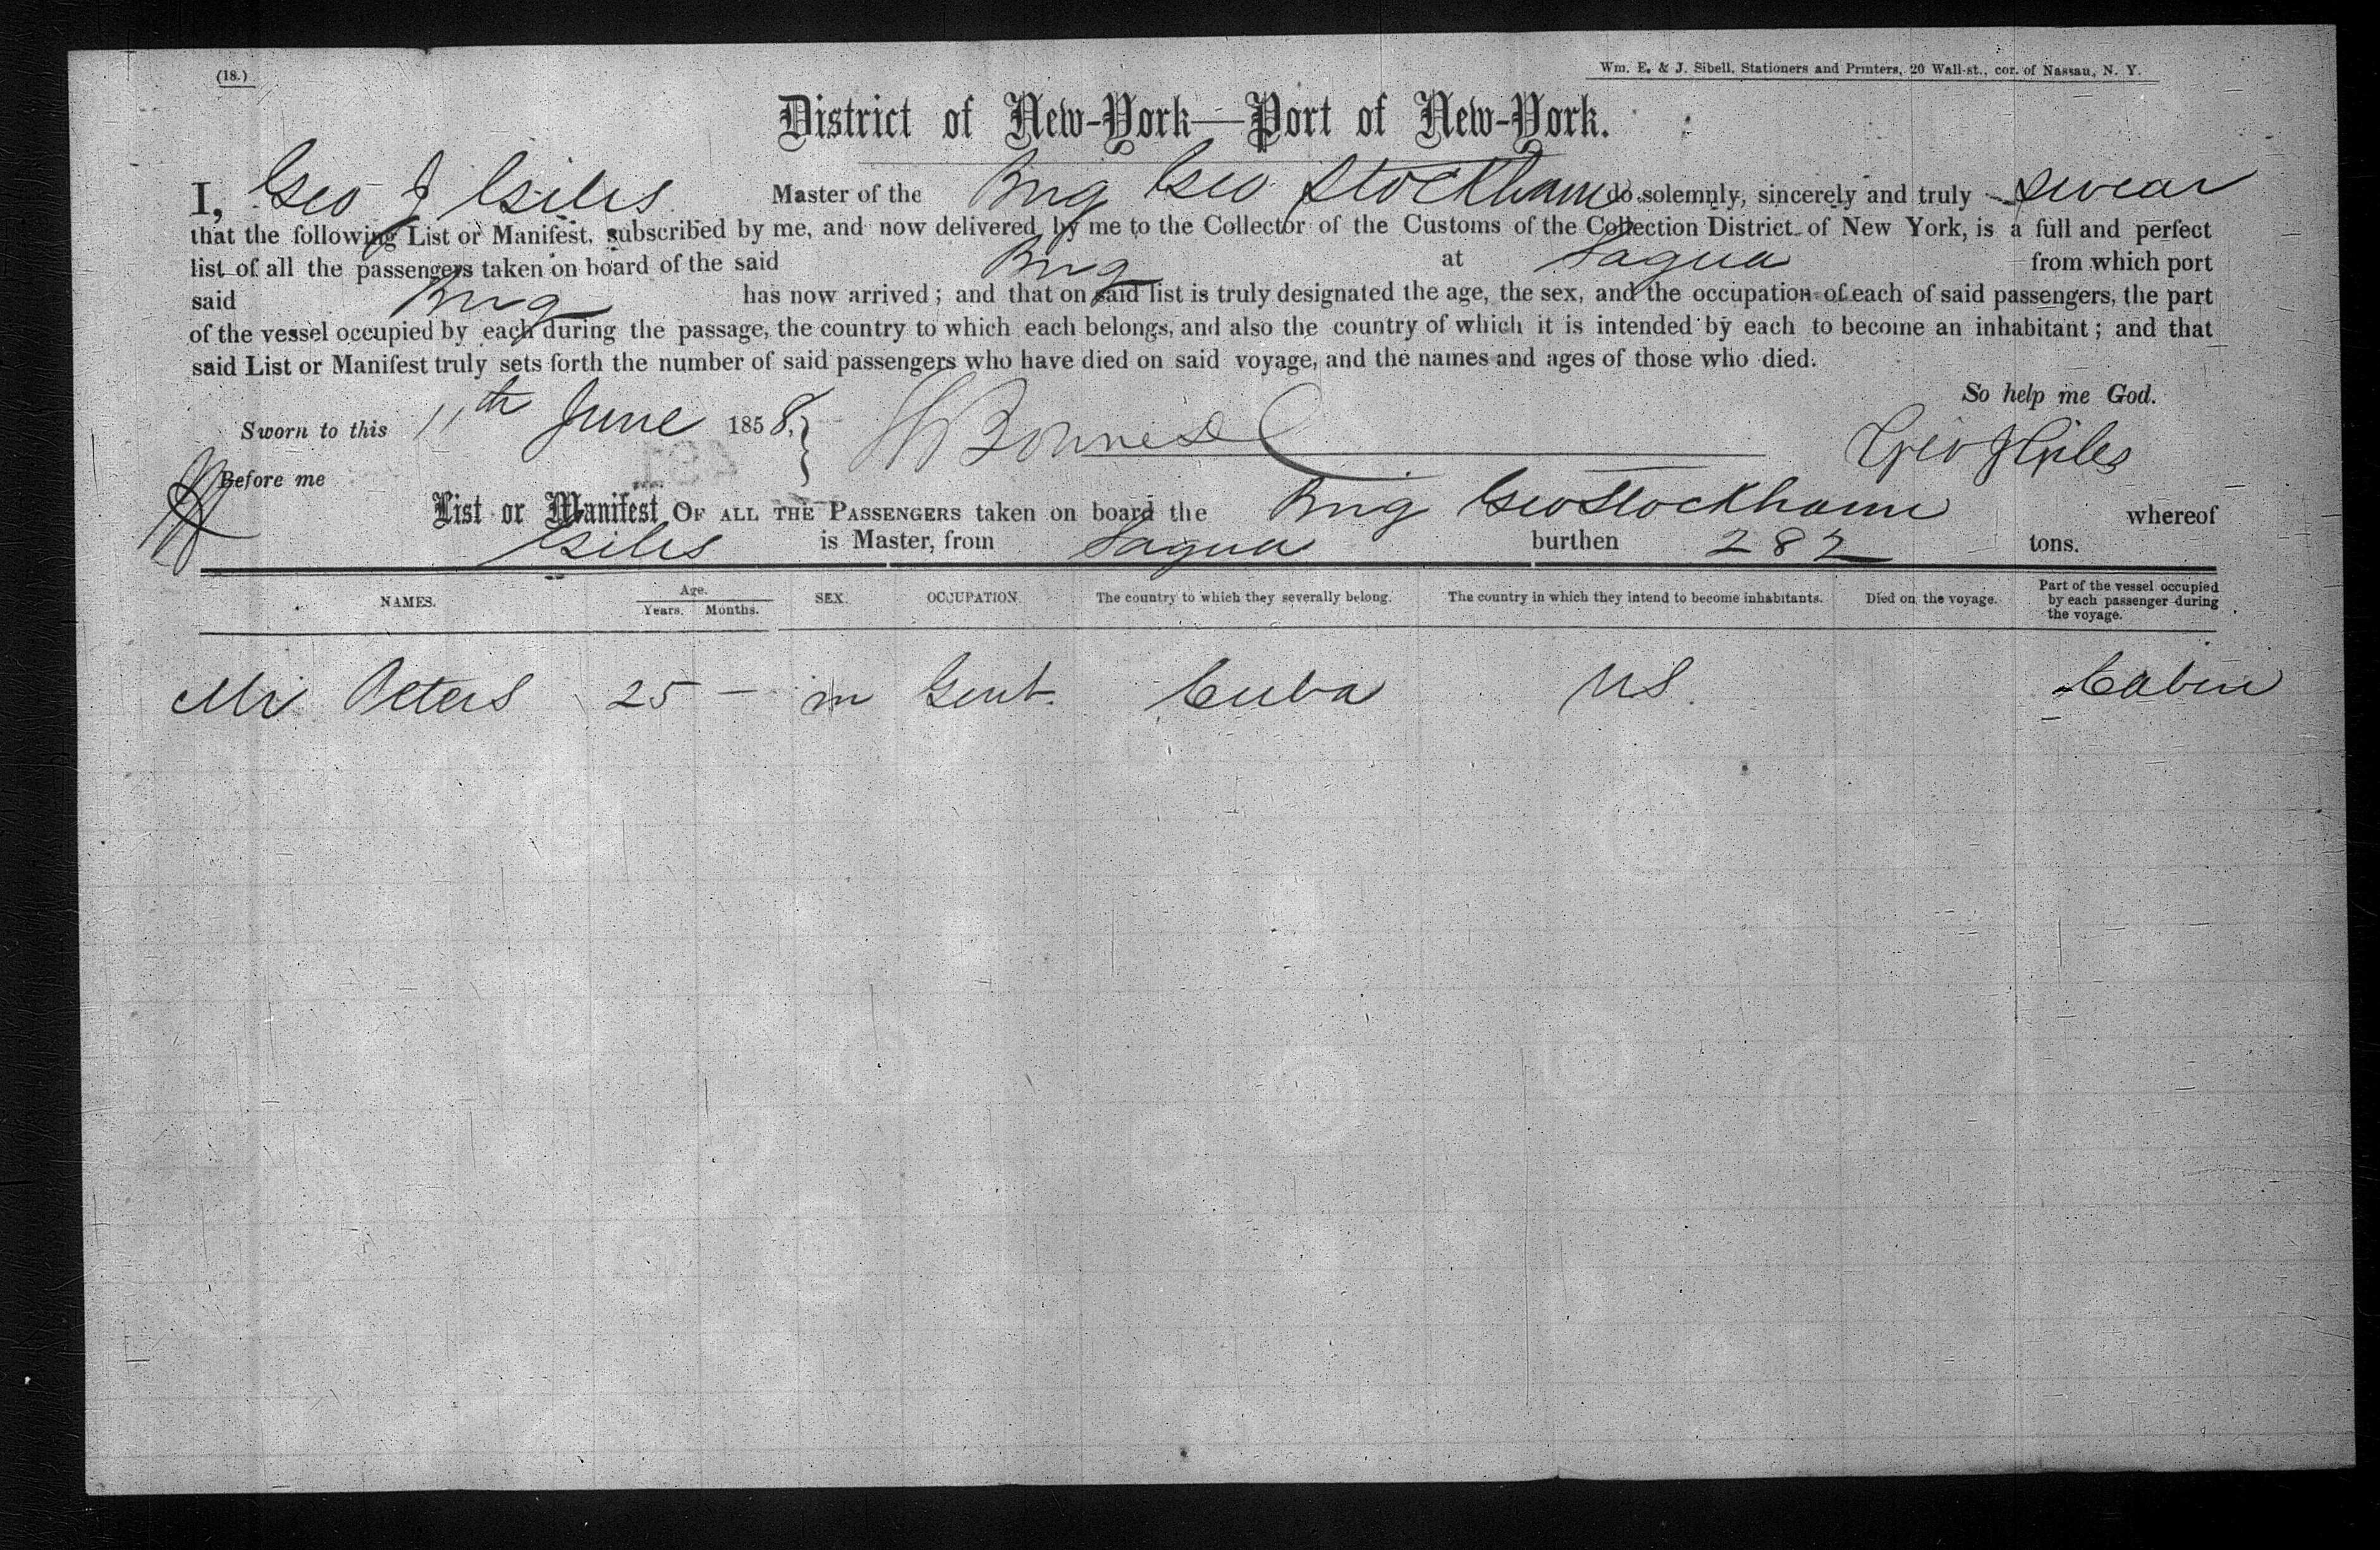 (18.)
Wm. E. & J. Sibell, Stationers and Printers, 20 Wall-st., cor. of Nassau, N. Y.
District of New-York—Port of New-York.
I, Geo J Giles Master of the Brig Geo Stockham do solemnly, sincerely and truly swear
that the following List or Manifest, subscribed by me, and now delivered by me to the Collector of the Customs of the Collection District of New York, is a full and perfect
list of all the passengers taken on board of the said Brig at Sagua from which port
said Brig has now arrived; and that on said list is truly designated the age, the sex, and the occupation of each of said passengers, the part
of the vessel occupied by each during the passage, the country to which each belongs, and also the country of which it is intended by each to become an inhabitant; and that
said List or Manifest truly sets forth the number of said passengers who have died on said voyage, and the names and ages of those who died.
So help me God.
Sworn to this 11th June 1858,
Geo J Giles
Before me
List or Manifest OF ALL THE PASSENGERS taken on board the Brig Geo Stockham whereof
Giles is Master, from Sagua burthen 282 tons.
NAMES. Age. Years. Months. SEX. OCCUPATION. The country to which they severally belong. The country in which they intend to become inhabitants. Died on the voyage. Part of the vessel occupied by each passenger during the voyage.
Mr Peters 25 — m Gent. Cuba US. Cabin